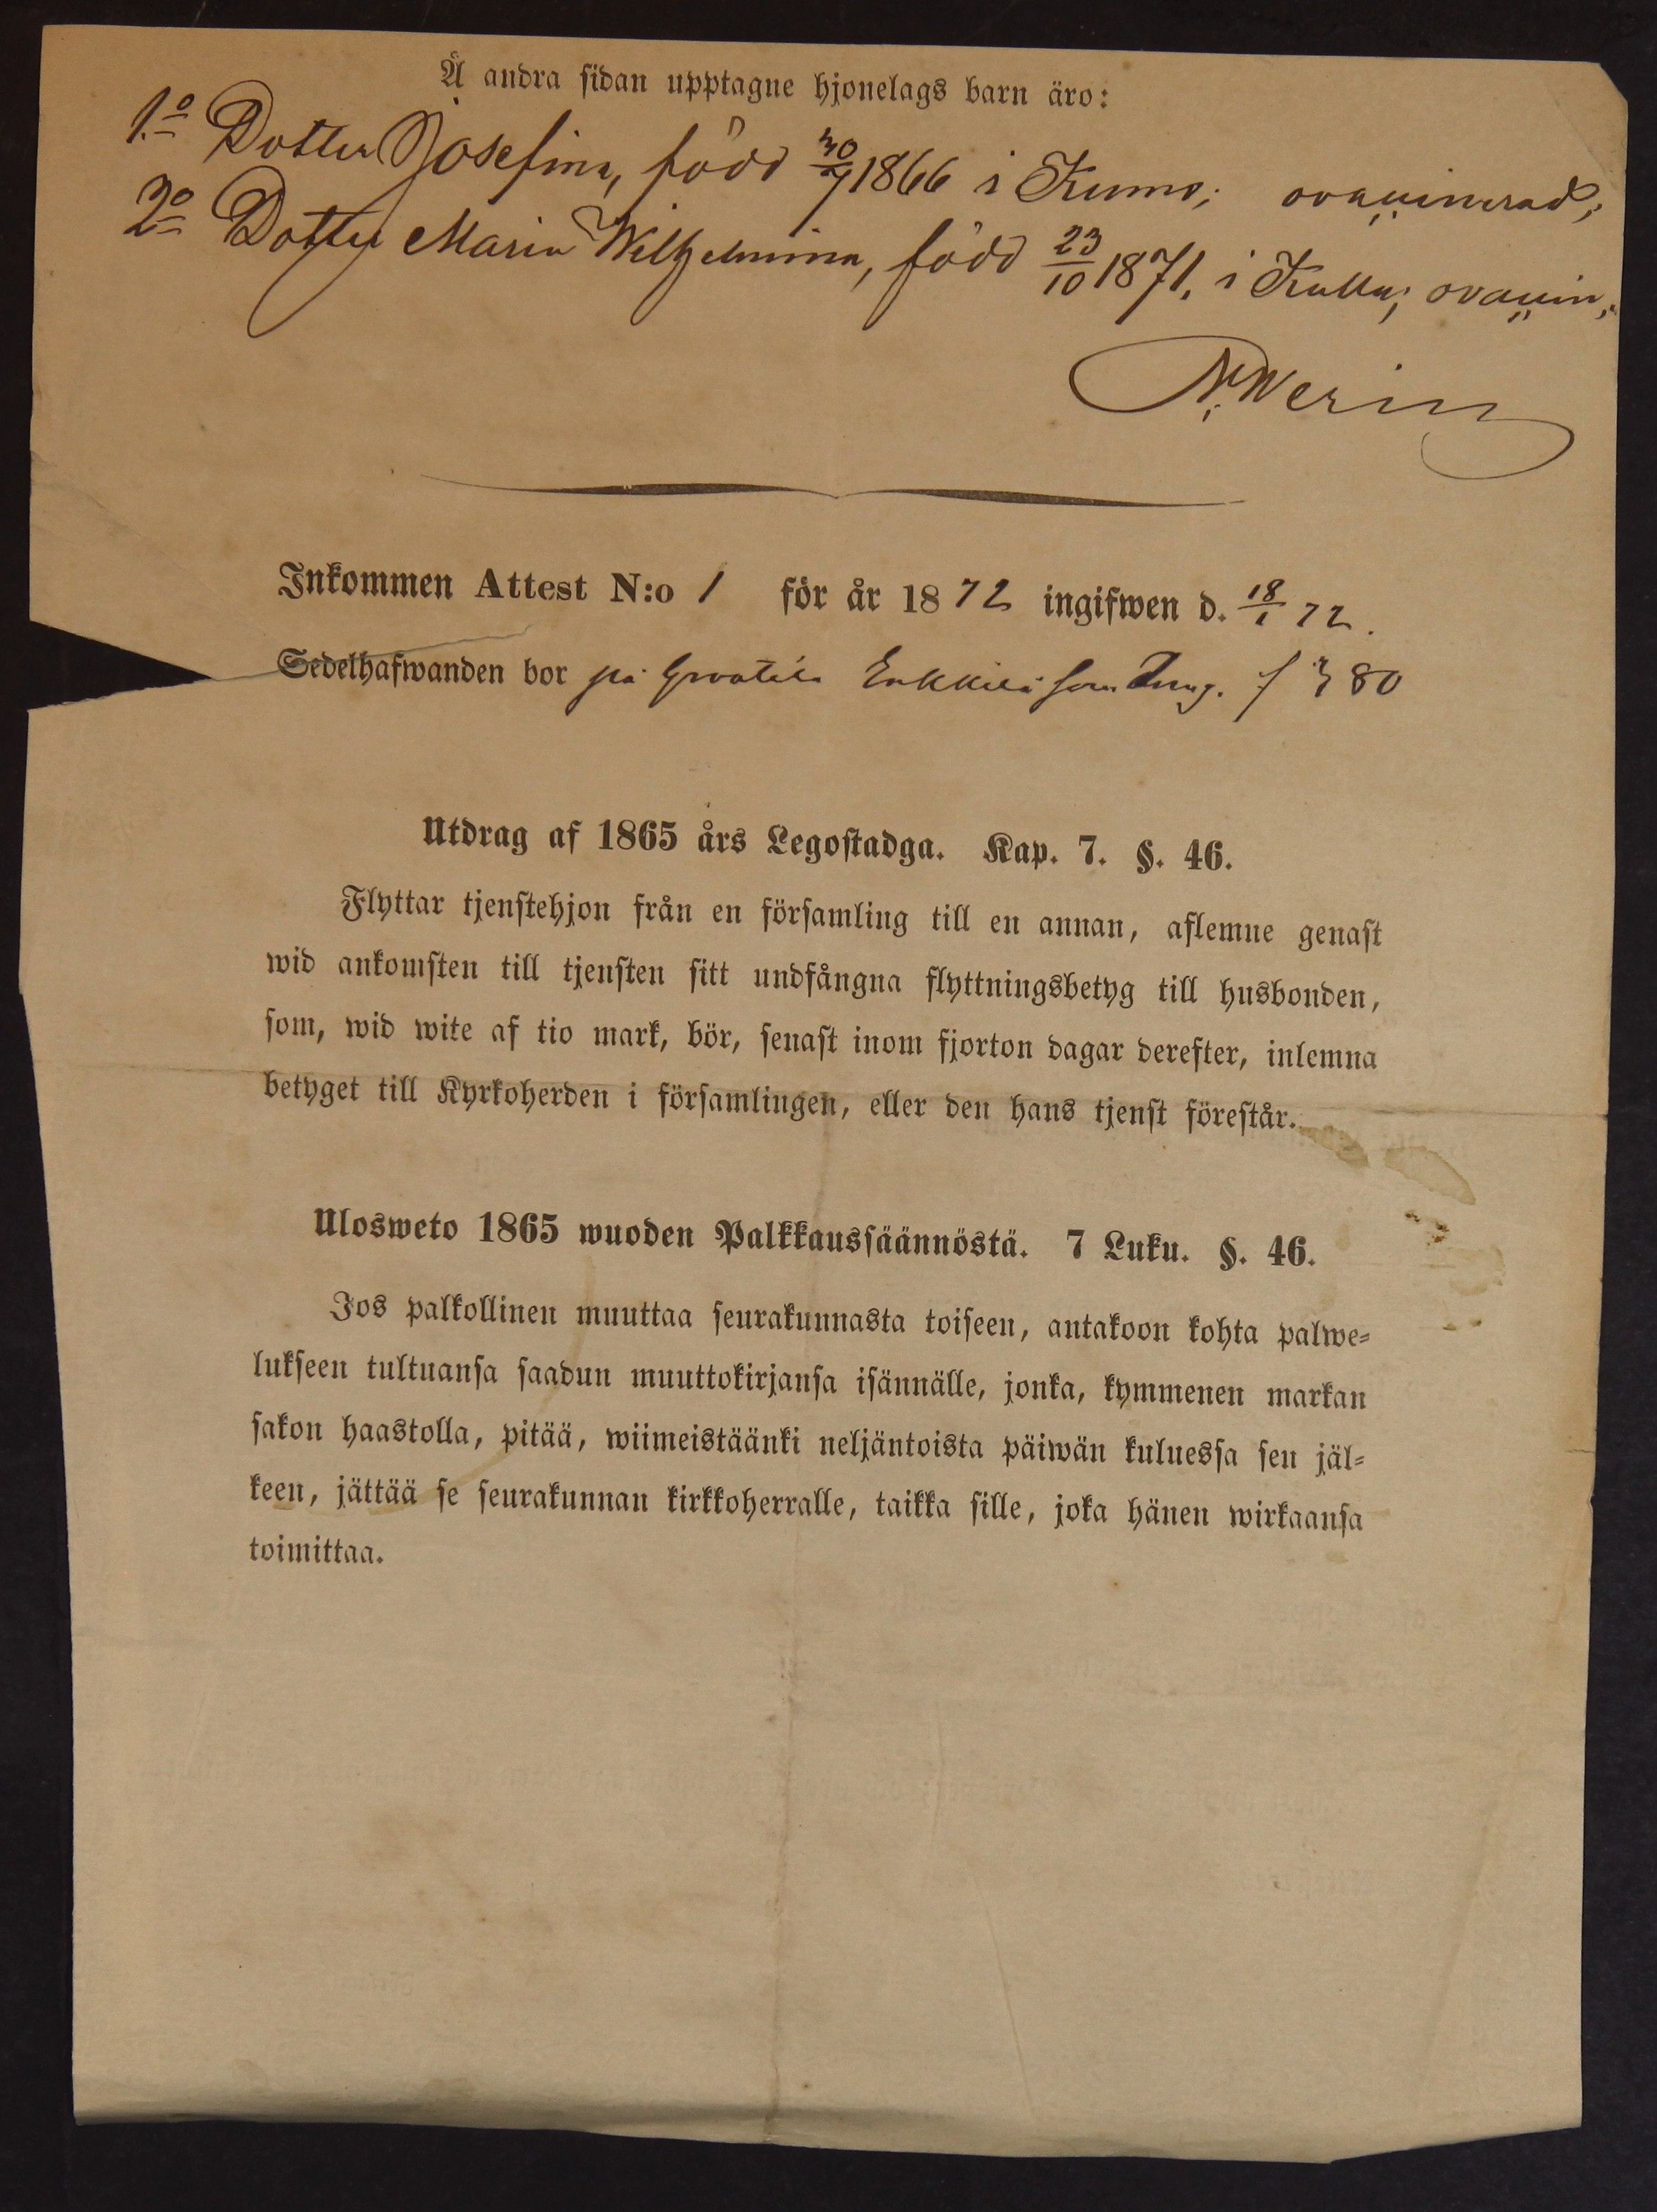 Å andra sidan upptagne hjonelags barn äro:
1:o Dotter Josefina, född 30/7 1866 i Kumo; ovaccinerad;
2:o Dotter Maria Wilhelmina, född 23/10 1871, i Kulla; ovaccin.
Inkommen Attest N:o 1 för år 1872 ingifwen d. 18/1 72.
Sedelhafwanden bor på Erkkilä som 80
Utdrag af 1865 års Legostadga. Kap. 7. §. 46.
Flyttar tjenstehjon från en församling till en annan, aflemne genast
wid ankomsten till tjensten sitt undfångna flyttningsbetyg till husbonden,
som, wid wite af tio mark, bör, senast inom fjorton dagar derefter, inlemna
betyget till Kyrkoherden i församlingen, eller den hans tjenst förestår.
Ulosweto 1865 wuoden Palkkaussäännöstä. 7 Luku. §. 46.
Jos palkollinen muuttaa seurakunnasta toiseen, antakoon kohta palwe-
lukseen tultuansa saadun muuttokirjansa isännälle, jonka, kymmenen markan
sakon haastolla, pitää, wiimeistäänki neljäntoista päiwän kuluessa sen jäl-
keen, jättää se seurakunnan kirkkoherralle, taikka sille, joka hänen wirkaansa
toimittaa.